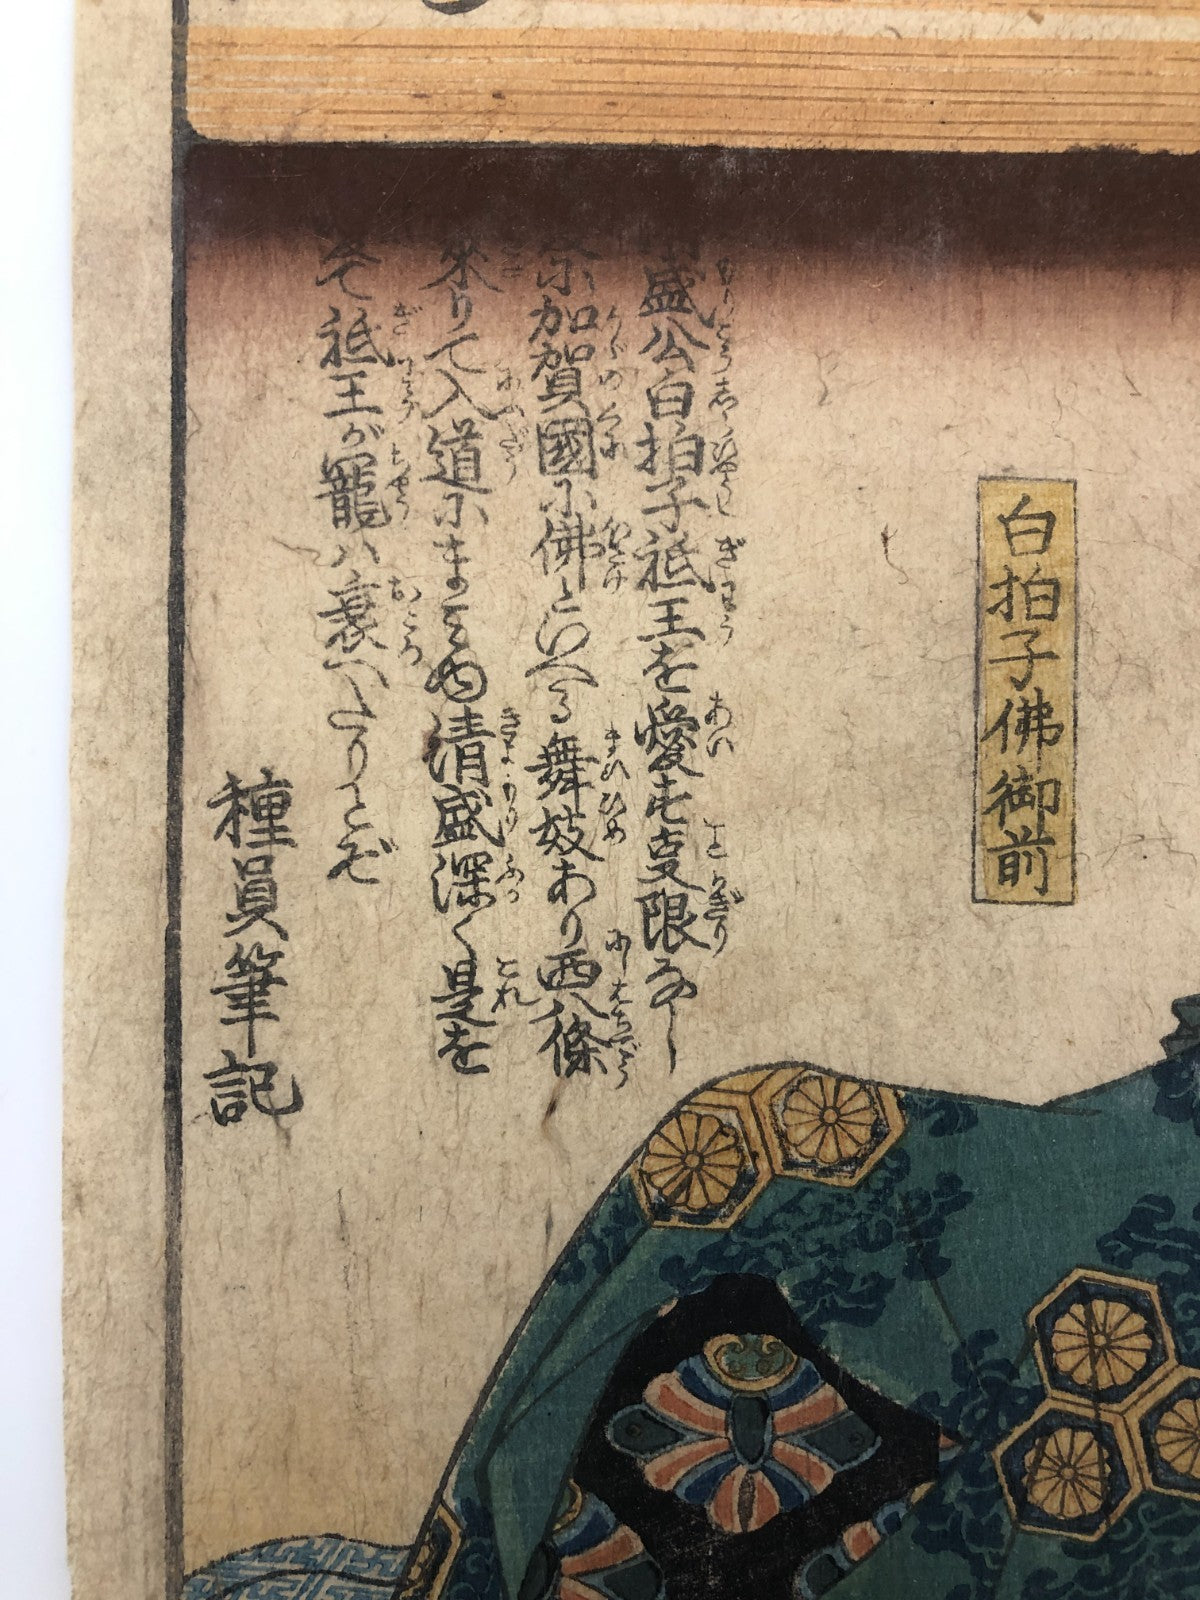 白拍子佛御前
盛公白拍子祇王を愛す事限なし
加賀國に佛といへる舞妓あり西八條
来りて入道にまみゆ清盛深く是を
て祇王が寵ハ衰へたりとぞ
種員筆記